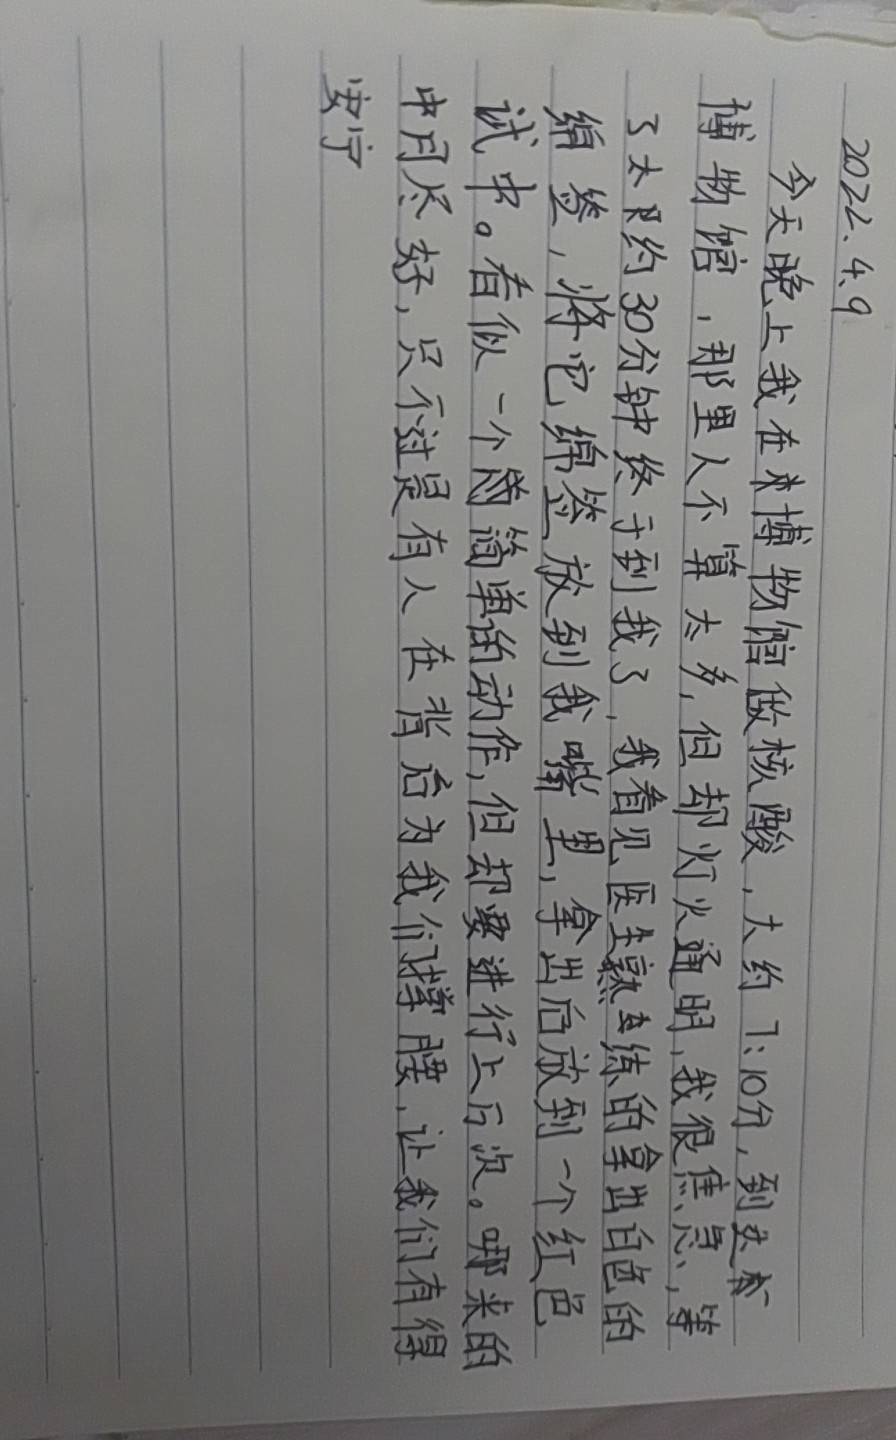 2022.4.9
今天晚上我在本博物馆做核酸，大约7:10分，到达
博物馆，那里人不算太多，但却灯火通明，我很焦急，等
了大约30分钟终于到我了，我看见医生熟练的拿出白色的
绵签，将它绵签放到我嘴里，拿出后放到一个红色
试中。看似一个简简单的动作，但却要进行上万次。哪来的
中月尽好，只不过是有人在背后为我们撑腰，让我们有得
安宁